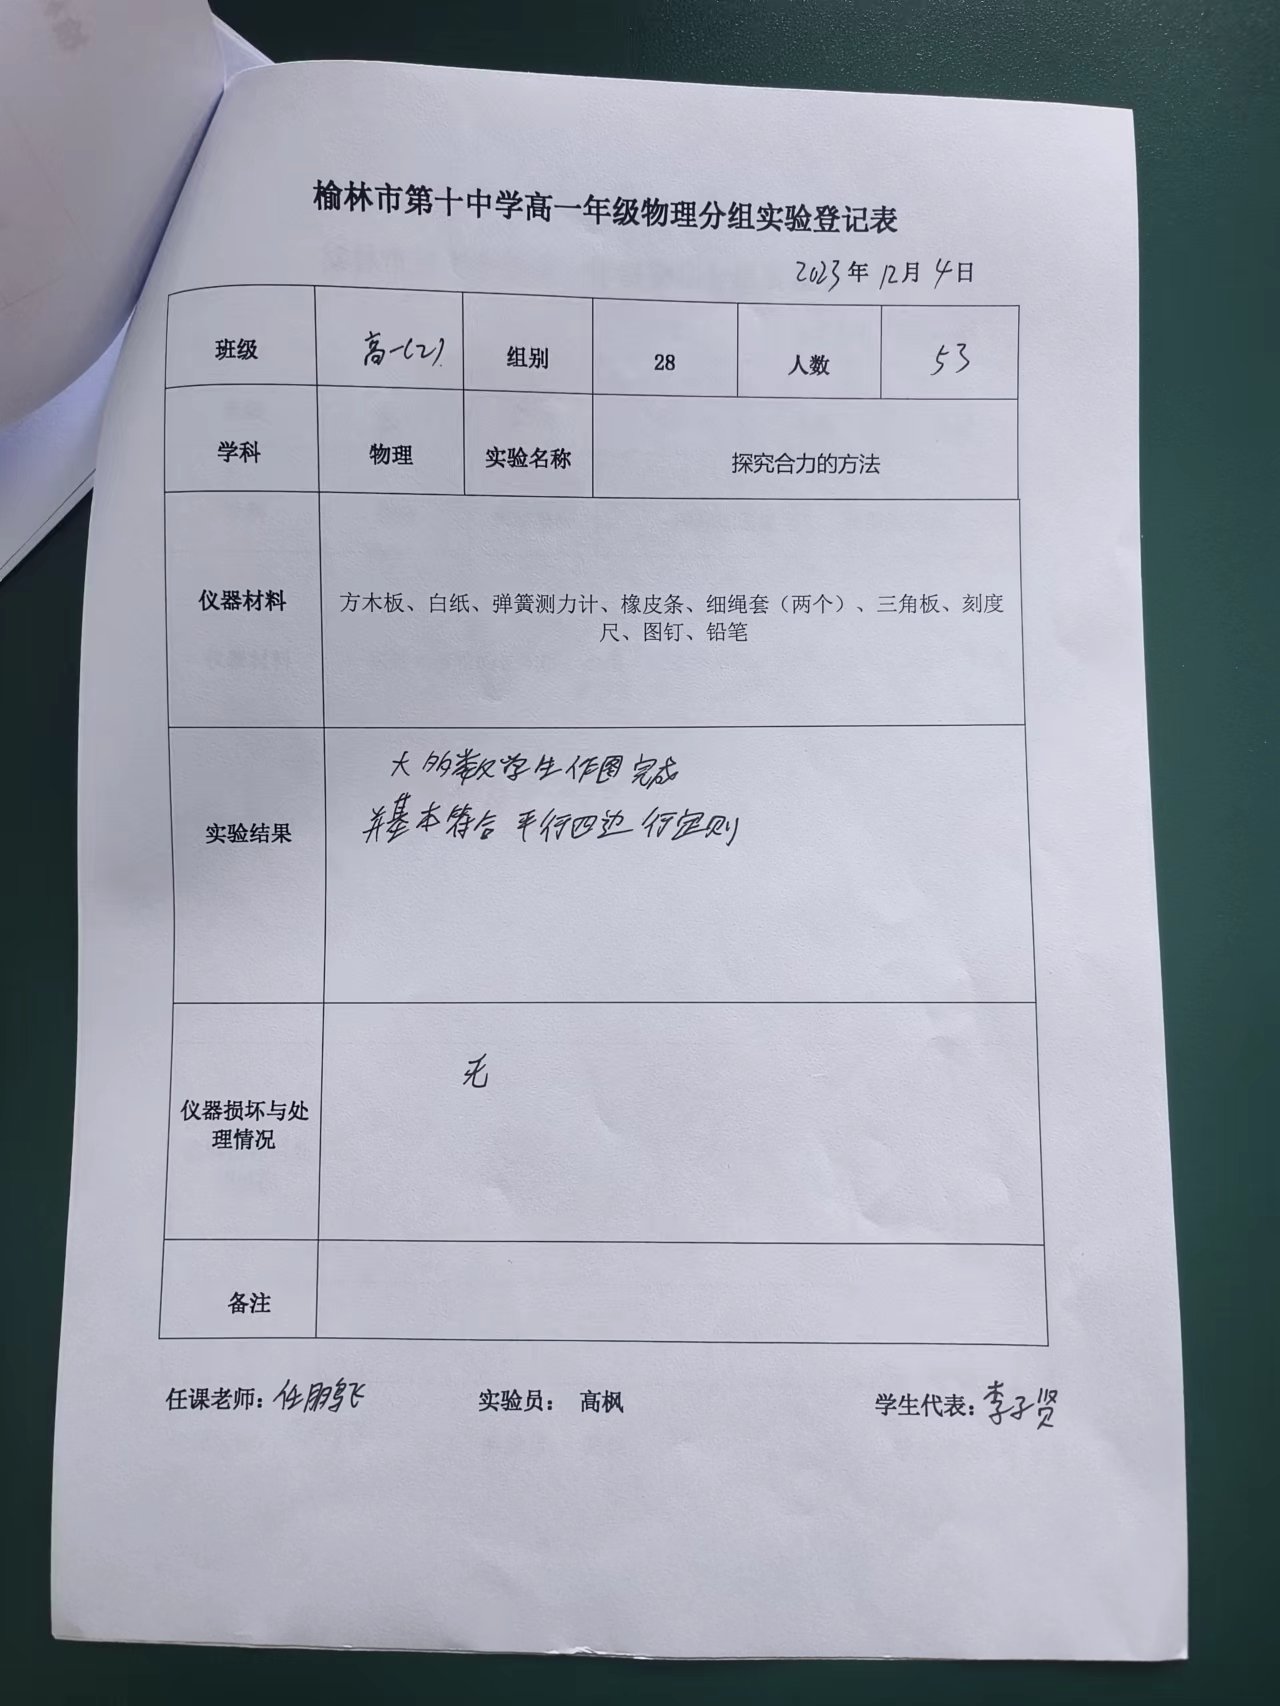 榆林市第十中学高一年级物理分组实验登记表
2023年12月4日
班级 高一(2) 组别 28 人数 53
学科 物理 实验名称 探究合力的方法
仪器材料 方木板、白纸、弹簧测力计、橡皮条、细绳套（两个）、三角板、刻度
尺、图钉、铅笔
大多数学生作图完成
实验结果 并基本符合平行四边行定则
无
仪器损坏与处
理情况
备注
任课老师：任鹏飞 实验员： 高枫 学生代表：李子贤